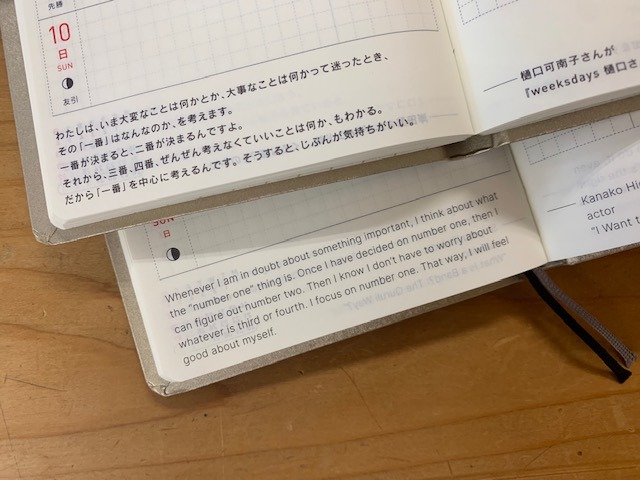 先勝
10
日
SUN
友引
わたしは、いま大変なことは何かとか、大事なことは何かって迷ったとき、
その「一番」はなんなのか、を考えます。
一番が決まると、二番が決まるんですよ。
それから、三番、四番、ぜんぜん考えなくていいことは何か、もわかる。
だから「一番」を中心に考えるんです。そうすると、じぶんが気持ちがいい。
── 樋口可南子さんが
『weeksdays 樋口さ
SUN
日
Whenever I am in doubt about something important, I think about what
the "number one" thing is. Once I have decided on number one, then I
can figure out number two. Then I know I don't have to worry about
whatever is third or fourth. I focus on number one. That way, I will feel
good about myself.
— Kanako Hi
actor
"I Want t